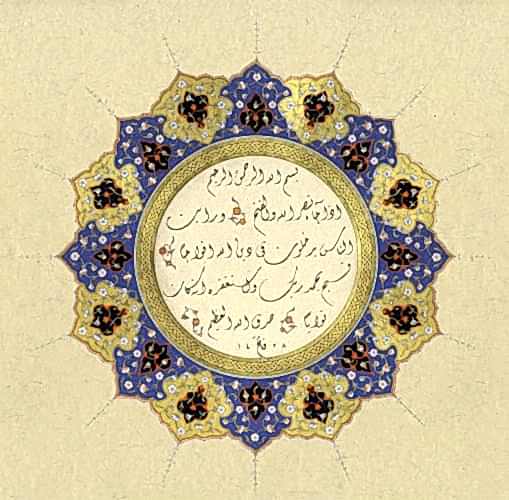 بسم الله الرحمن الرحیم
اذا جا نصر الله والفتح ورایت
الناس یدخلون فی دین الله افواجا
فسبح بحمد ربک واستغفره انه کان
توابا صدق الله العظیم